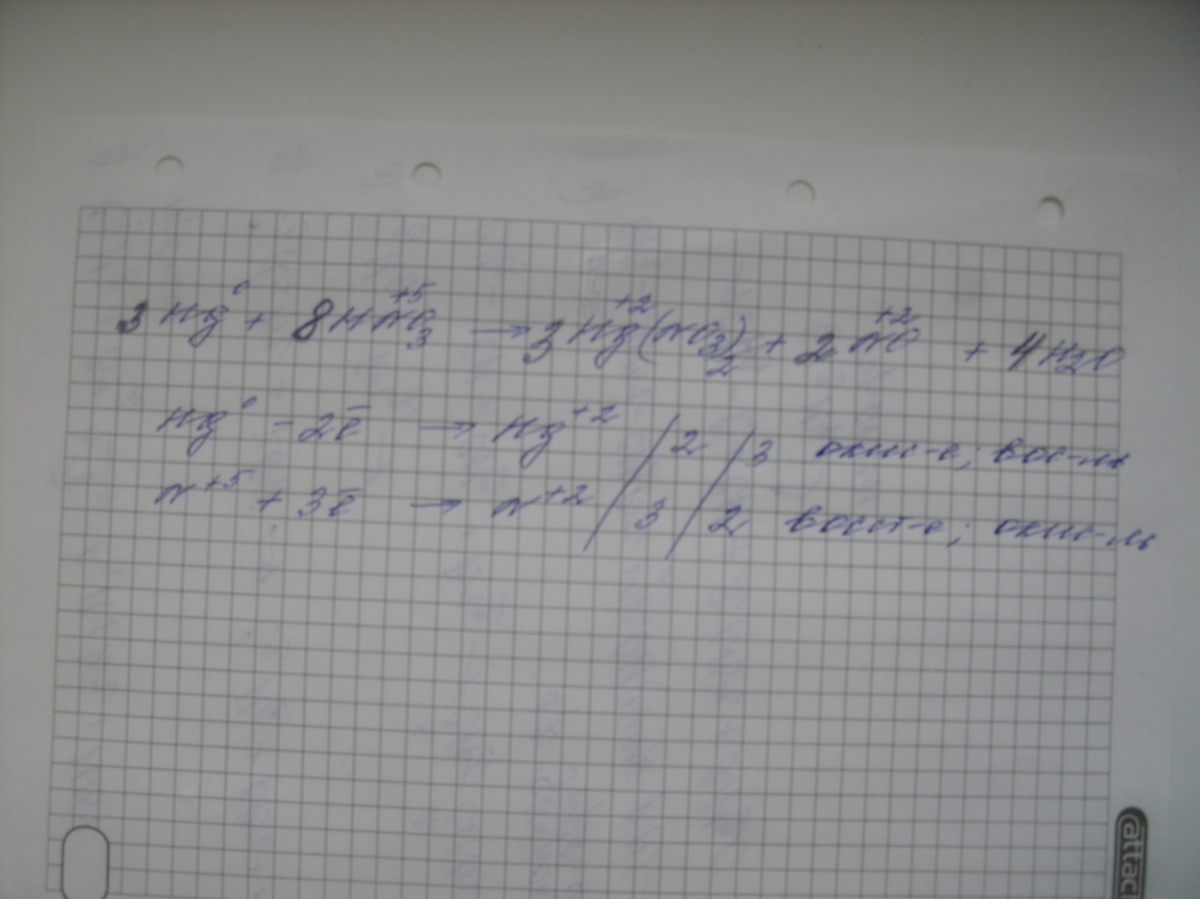 3 Hg⁰ + 8HN⁺⁵O₃ → 3Hg⁺²(NO₃)₂ + 2N⁺²O + 4H₂O
Hg⁰ - 2ē → Hg⁺² / 2 / 3 окис-е; вос-ль
N⁺⁵ + 3ē → N⁺² / 3 / 2 восст-е; окис-ль
attac